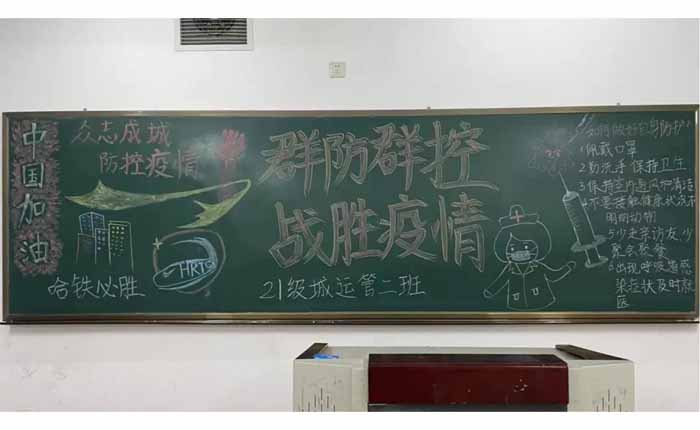 中国加油
众志成城
防控疫情
哈铁必胜
HRTC
群防群控
战胜疫情
21级城运管二班
如何做好自身防护
1佩戴口罩
2勤洗手 保持卫生
3保持室内通风和清洁
4不要接触健康状况不
明的动物
5少走亲访友 少
聚会聚餐
6出现呼吸道感
染症状及时就
医